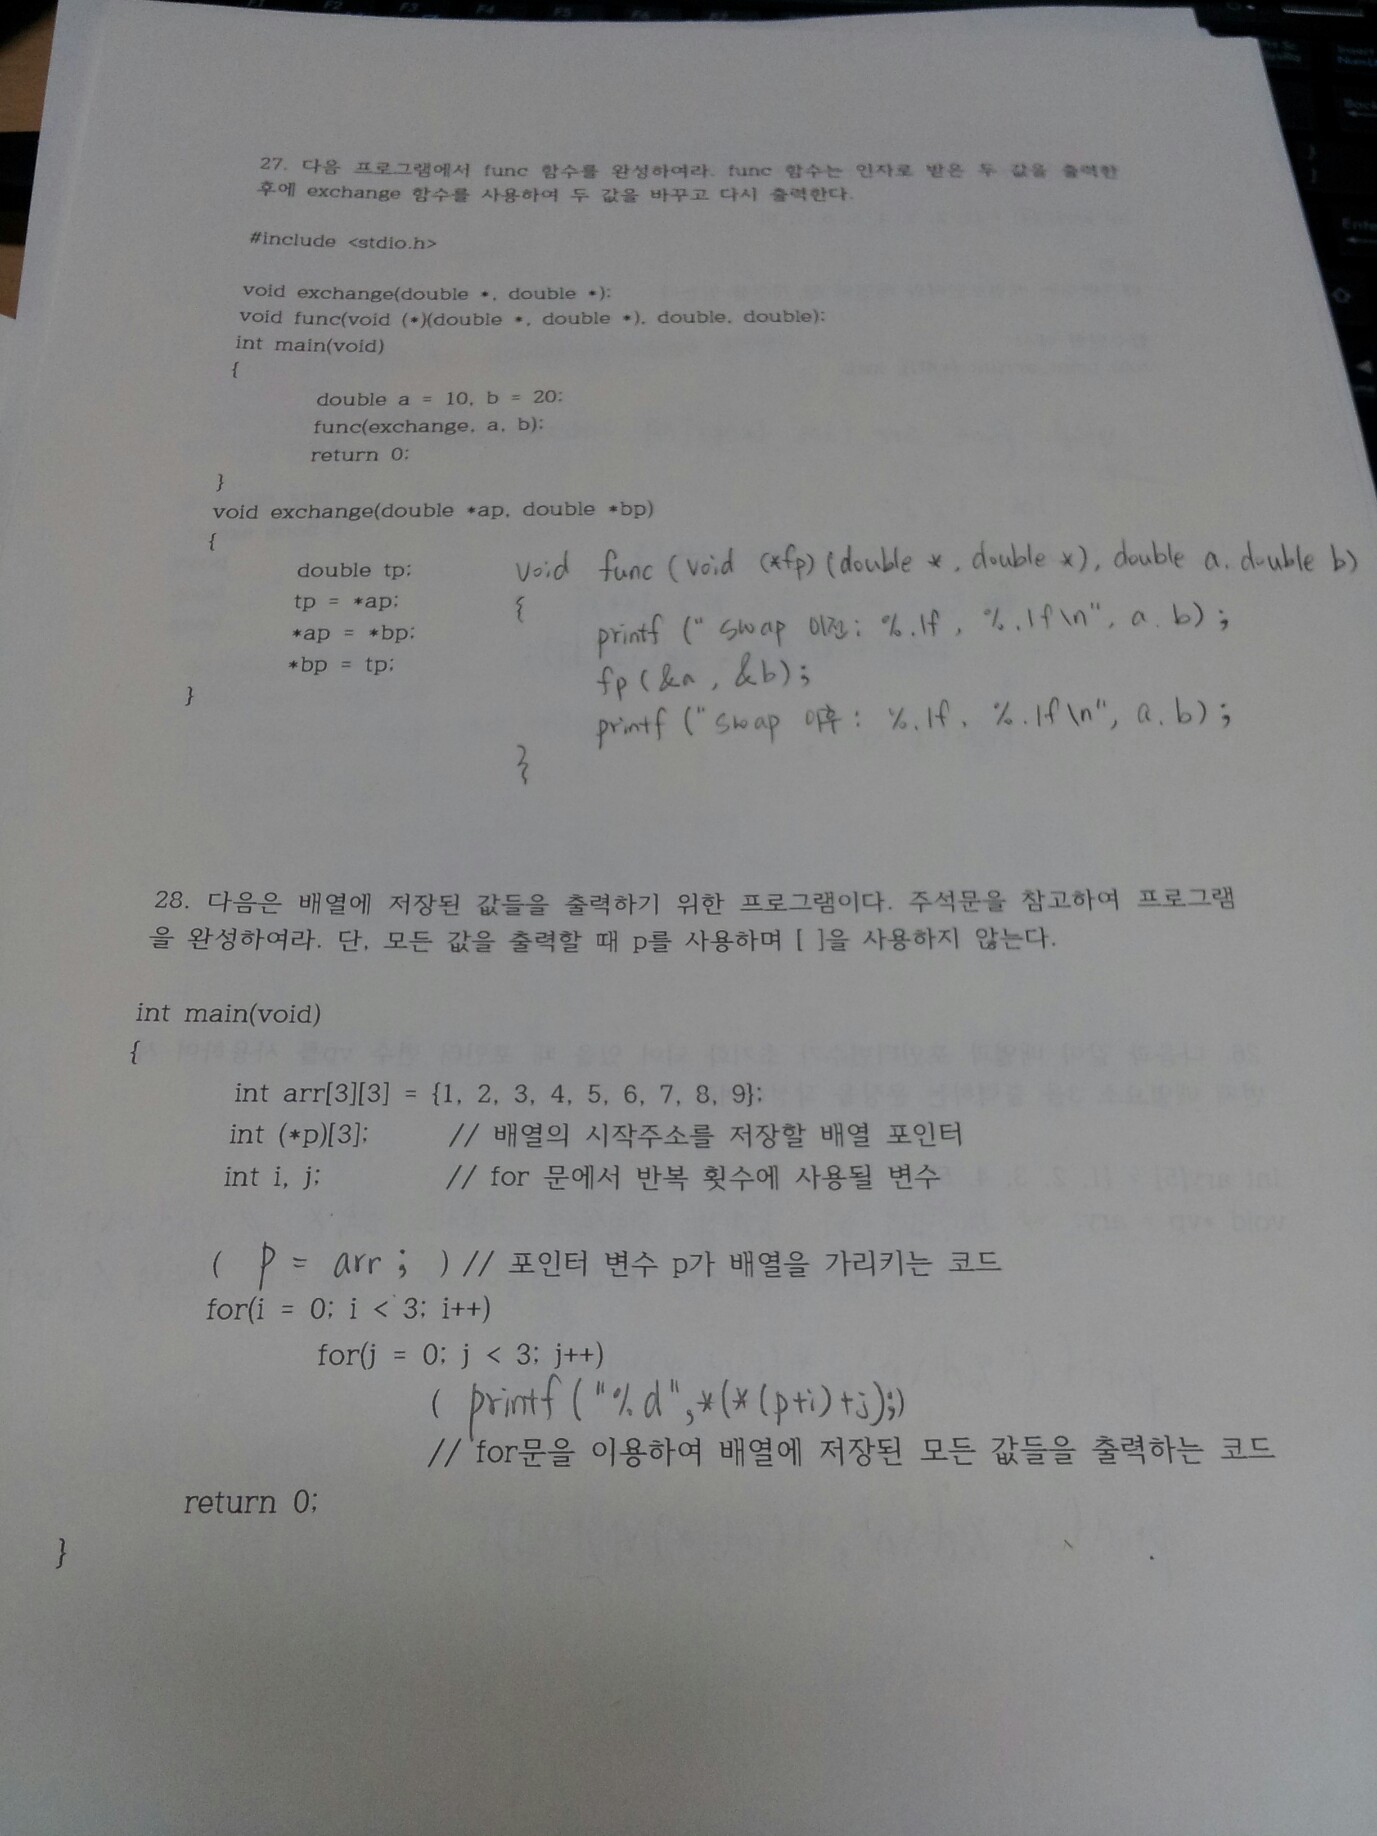 27. 다음 프로그램에서 func 함수를 완성하여라. func 함수는 인자로 받은 두 값을 출력한
후에 exchange 함수를 사용하여 두 값을 바꾸고 다시 출력한다.
#include <stdio.h>
void exchange(double *, double *);
void func(void (*)(double *, double *), double, double);
int main(void)
{
double a = 10, b = 20;
func(exchange, a, b);
return 0;
}
void exchange(double *ap, double *bp)
{
double tp;
tp = *ap;
*ap = *bp;
*bp = tp;
}
void func (void (*fp)(double *, double *), double a, double b)
{
printf (" swap 이전: %.1f, %.1f\n", a, b);
fp (&a, &b);
printf (" swap 이후: %.1f, %.1f\n", a, b);
}
28. 다음은 배열에 저장된 값들을 출력하기 위한 프로그램이다. 주석문을 참고하여 프로그램
을 완성하여라. 단, 모든 값을 출력할 때 p를 사용하며 [ ]을 사용하지 않는다.
int main(void)
{
int arr[3][3] = {1, 2, 3, 4, 5, 6, 7, 8, 9};
int (*p)[3]; // 배열의 시작주소를 저장할 배열 포인터
int i, j; // for 문에서 반복 횟수에 사용될 변수
( p = arr; ) // 포인터 변수 p가 배열을 가리키는 코드
for(i = 0; i < 3; i++)
for(j = 0; j < 3; j++)
( printf ("%d",*(*(p+i)+j);)
// for문을 이용하여 배열에 저장된 모든 값들을 출력하는 코드
return 0;
}